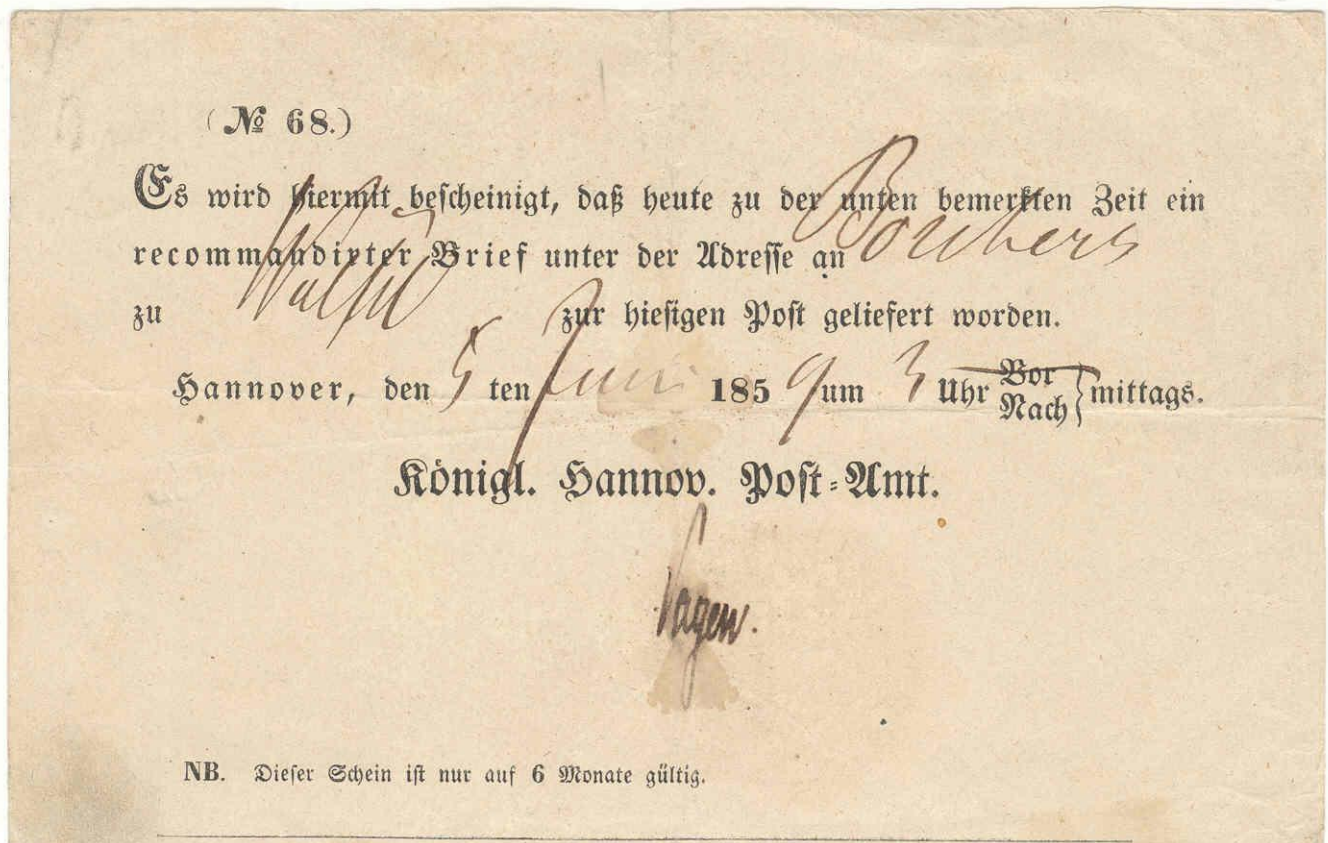 (№ 68.)
Es wird hiermit bescheinigt, daß heute zu der unten bemerkten Zeit ein
recommandirter Brief unter der Adresse an
zu zur hiesigen Post geliefert worden.
Hannover, den 5 ten Juni 1859 um 3 Uhr Vor Nach } mittags.
Königl. Hannov. Post-Amt.
NB. Dieser Schein ist nur auf 6 Monate gültig.